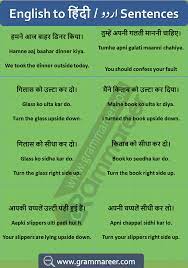 English to हिंदी / اردو Sentences
हमने आज बाहर डिनर किया।
Hamne aaj baahar dinner kiya.
We took the dinner outside today.
तुम्हें अपनी गलती माननी चाहिए।
Tumhe apni galati maanni chahiye.
You should confess your fault
गिलास को उल्टा कर दो।
Glass ko ulta kar do.
Turn the glass upside down.
मैंने किताब को उल्टा कर दिया।
Maine book ko ulta kr diya.
I turned the book upside down.
गिलास को सीधा कर लो।
Glass ko sidha kar do.
Turn the glass right side up.
किताब को सीधा कर दो।
Book ko seedha kar do.
Turn the book right side up.
आपकी चप्पलें उल्टी पड़ी हुई हैं।
Aapki slippers ulti padi hui h.
Your slippers are lying upside down.
अपनी चप्पलें सीधी कर लो।
Apni chappal sidhi kar lo.
Turn your slippers right side up.
www.grammareer.com